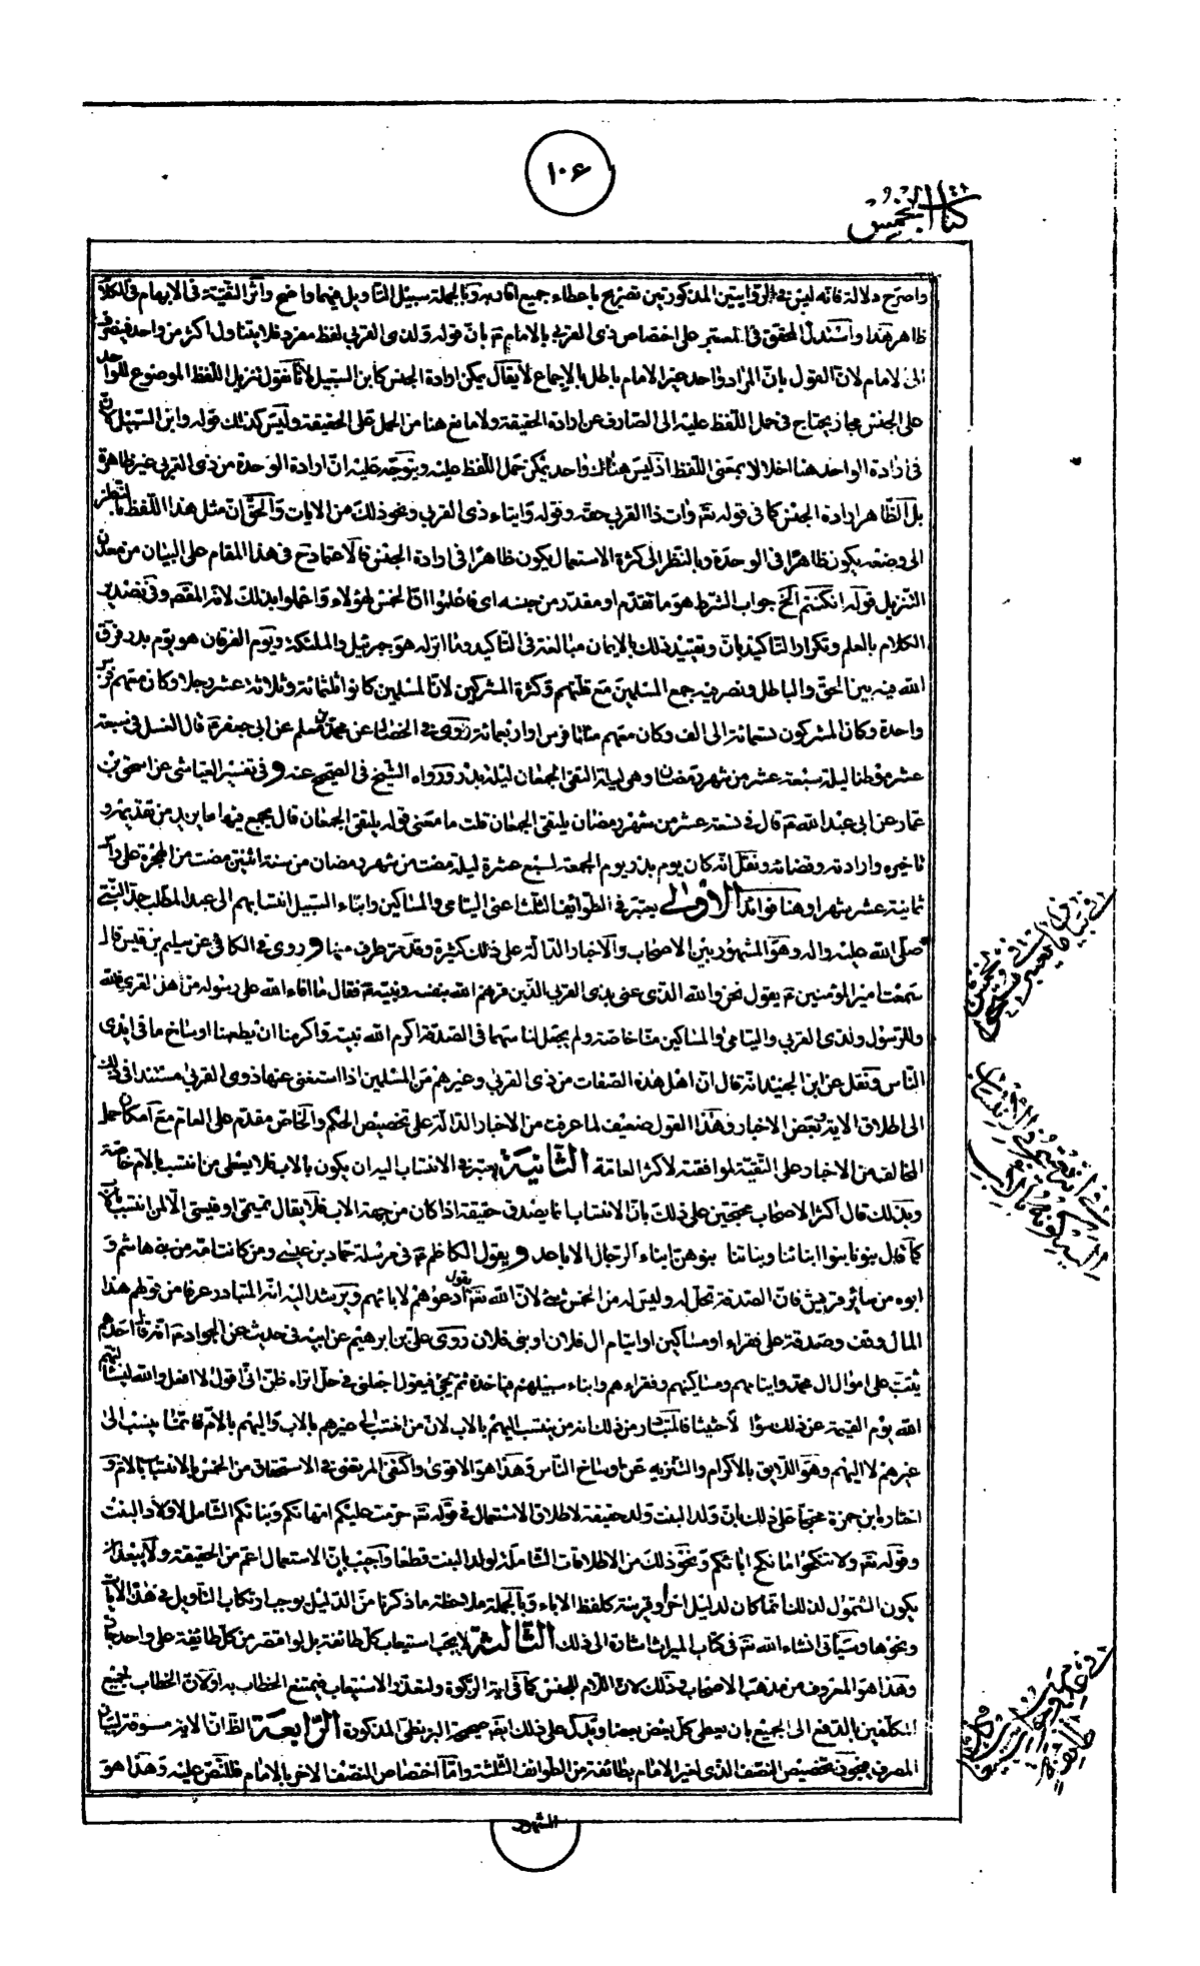 ١٠۶
كتاب الخمس
واصرح دلالة فانه ليس في الروايتين المذكورتين تصريح باعطاء جميع اقاربه وبالجملة سبيل التأويل فيهما واضح وأثر التقية في الابهام في الكلام
ظاهر هذا واستدل المحقق في المعتبر على اختصاص ذي القربى بالامام ع بان قوله ولذي القربى لفظ مفرد فلا يتناول اكثر من واحد فينصرف
الى الامام لان القول بان المراد واحد غير الامام باطل بالاجماع لا يقال يمكن ارادة الجنس كابن السبيل لانا نقول تنزيل اللفظ الموضوع للواحد
على الجنس مجاز يحتاج في حمل اللفظ عليه الى الصارف عن ارادة الحقيقة ولا مانع هنا من الحمل على الحقيقة وليس كذلك قوله وابن السبيل لان
في ارادة الواحد هنا اخلالا بمعنى اللفظ اذ ليس هناك واحد يمكن حمل اللفظ عليه ويتوجه عليه ان ارادة الوحدة من ذي القربى غير ظاهرة
بل الظاهر ارادة الجنس كما في قوله تع وات ذا القربى حقه وقوله وايتاء ذي القربى ونحو ذلك من الايات والحق ان مثل هذا اللفظ بالنظر
الى وضعه يكون ظاهرا في الوحدة وبالنظر الى كثرة الاستعمال يكون ظاهرا في ارادة الجنس فالاعتماد ح في هذا المقام على البيان من معدن
التنزيل قوله ان كنتم الخ جواب الشرط هو ما تقدم او مقدر من جنسه اى فاعلموا ان الخمس لهؤلاء واعملوا بذلك لانه المقصود وفي تصدير
الكلام بالعلم وتكرار التاكيد بان وتقييد ذلك بالايمان مبالغة في التاكيد وما انزله هو جبرئيل والملئكة ويوم الفرقان هو يوم بدر فرق
الله فيه بين الحق والباطل ونصر فيه جمع المسلمين مع قلتهم وكثرة المشركين لان المسلمين كانوا ثلثمائة وثلاثة عشر رجلا وكان معهم فرس
واحدة وكان المشركون تسمائة الى الف وكان معهم مائتا فرس او اربعمائة روى في الخصال عن محمد بن مسلم عن ابي جعفر ع قال الغسل في سبعة
عشر موطنا ليلة سبعة عشر من شهر رمضان وهي ليلة التقى الجمعان ليلة بدر ورواه الشيخ في الصحيح عنه وفي تفسير العياشي عن اسحق بن
عمار عن ابي عبد الله ع قال في تسعة عشر من شهر رمضان يلتقي الجمعان قلت ما معنى قوله يلتقي الجمعان قال يجمع فيها ما يريد من تقديمه و
تاخيره وارادته وقضائه ونقل انه كان يوم بدر يوم الجمعة لسبع عشرة ليلة مضت من شهر رمضان من سنة اثنتين مضت من الهجرة على راس
ثمانية عشر شهرا وهنا فوائد الاولى يعتبر في الطوائف الثلث اعنى اليتامى والمساكين وابناء السبيل انتسابهم الى عبد المطلب جد النبي
صلى الله عليه واله وهو المشهور بين الاصحاب والاخبار الدالة على ذلك كثيرة وقد مر طرف منها وروى في الكافي عن سليم بن قيس قال
سمعت امير المؤمنين ع يقول نحن والله الذي عنى بذي القربى الذين قرنهم الله بنفسه ونبيه ص فقال ما افاء الله على رسوله من اهل القرى فلله
وللرسول ولذي القربى واليتامى والمساكين منا خاصة ولم يجعل لنا سهما في الصدقة اكرم الله نبيه واكرمنا ان يطعمنا اوساخ ما في ايدى
الناس ونقل عن ابن الجنيد انه قال ان اهل هذه الصفات من ذي القربى وغيرهم من المسلمين اذا استغنى عنها ذوى القربى مستندا في ذلك
الى اطلاق الاية وبعض الاخبار وهذا القول ضعيف لما عرفت من الاخبار الدالة على تخصيص الحكم والخاص مقدم على العام مع امكان حمل
المخالف من الاخبار على التقية لموافقته لاكثر العامة الثانية يعتبر في الانتساب اليه ان يكون بالاب فلا يعطى من انتسب بالام خاصة
وبذلك قال اكثر الاصحاب محتجين على ذلك بان الانتساب انما يصدق حقيقة اذا كان من جهة الاب فلا يقال تميمي او قيسي الا لمن انتسب بالاب
كما قيل بنونا بنوا ابنائنا وبناتنا بنوهن ابناء الرجال الاباعد وبقول الكاظم ع في مرسلة حماد بن عيسى ومن كانت امه من بني هاشم و
ابوه من سائر قريش فان الصدقة تحل له وليس له من الخمس شيء لان الله تع يقول ادعوهم لابائهم ويرشد اليه انه المتبادر عرفا من قولهم هذا
المال وقف وصدقة على فقراء او مساكين او ايتام ال فلان او بنى فلان وروى علي بن ابرهيم عن ابيه في حديث عن الجواد ع انه قال احدهم
يثب على اموال ال محمد وايتامهم ومساكينهم وفقراءهم وابناء سبيلهم فياخذه ثم يجئ فيقول اجعلني في حل اتراه ظن انى اقول لا افعل والله ليسألنهم
الله يوم القيمة عن ذلك سؤالا حثيثا فالمتبادر من ذلك انه من ينتسب اليهم بالاب لان من انتسب الى غيرهم بالاب واليهم بالام فانما ينسب الى
غيرهم لا اليهم وهو اللايق بالاكرام والتنزيه عن اوساخ الناس وهذا هو الاقوى واكتفى المرتضى في الاستحقاق من الخمس بالانتساب بالام و
اختاره ابن حمزة محتجا على ذلك بان ولد البنت ولد حقيقة لاطلاق الاستعمال في قوله تع حرمت عليكم امهاتكم وبناتكم الشامل لاولاد البنت
وقوله تع ولا تنكحوا ما نكح اباؤكم ونحو ذلك من الاطلاقات الشاملة لولد البنت قطعا واجيب بان الاستعمال اعم من الحقيقة ولا يبعد ان
يكون الشمول لذلك انما كان لدليل اخر او قرينة كلفظ الاباء وبالجملة ملاحظة ما ذكرنا من الدليل يوجب ارتكاب التأويل في هذه الايات
ونحوها وسيأتي انشاء الله تع في كتاب الميراث اشارة الى ذلك الثالثة لا يجب استيعاب كل طائفة بل لو اقتصر من كل طائفة على واحد جاز
وهذا هو المعروف من مذهب الاصحاب وذلك لان اللام للجنس كما في اية الزكوة ولتعذر الاستيعاب فيمتنع الخطاب به او لان الخطاب لجميع
المكلفين بالدفع الى الجميع بان يعطى كل بعض بعضا ويدل على ذلك ايضا صحيحة البزنطى المذكورة الرابعة الظ ان الاية مسوقة لبيان
المصرف فيجوز تخصيص النصف الذي لغير الامام بطائفة من الطوائف الثلثة واما اختصاص النصف الاخر بالامام فللنص عليه وهذا هو
المشهور